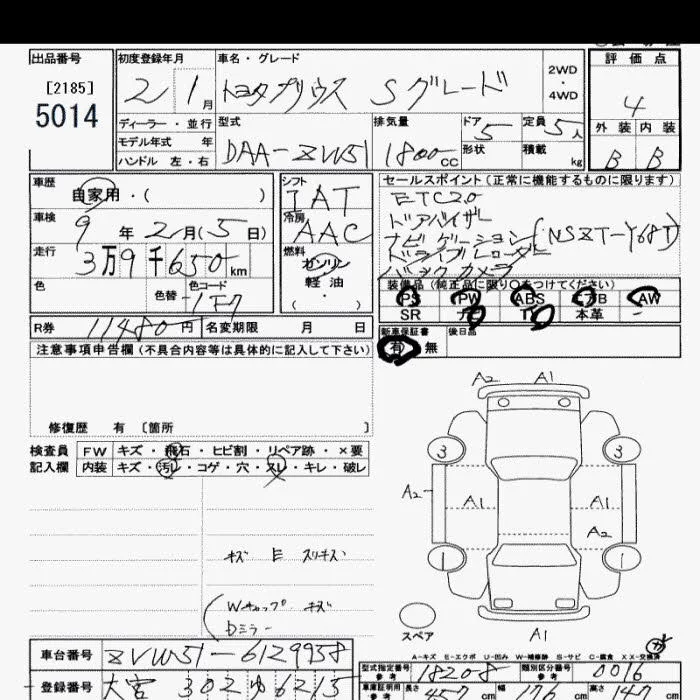 出品番号
[2185]
5014
初度登録年月
2 1月
車名・グレード
トヨタプリウス Sグレード
2WD
・
4WD
評価点
4
外装 内装
B B
ディーラー・並行
モデル年式 年
ハンドル 左・右
型式
DAA-ZVW51
排気量
1800cc
ドア
5
定員
5人
形状
積載
kg
車歴
自家用・( )
車検
9年2月(5日)
走行
3万9千650km
色
色替
カラーコード
1F7
シフト
IAT
冷房
AAC
燃料
ガソリン
軽油
・
( )
セールスポイント(正常に機能するものに限ります)
ETC2.0
ドアバイザー
ナビゲーション(NSZT-Y68T)
ドライブレコーダー
バックカメラ
装備品(純正品に限り○をつけてください)
PS PW ABS AB AW
SR 本革 -
R券
11480円
名変期限 月 日
新車保証書
有 無
後日品
注意事項申告欄(不具合内容等は具体的に記入して下さい)
修復歴 有 〔箇所 〕
検査員
記入欄
FW キズ・飛石・ヒビ割・リペア跡・×要
内装 キズ・汚レ・コゲ・穴・スレ・キレ・破レ
キズ E スリキズ
Wキャップ キズ
Dミラー
A2 A1
3 3
A2 A1 A1
A2
1 1
スペア
A1
A-キズ E-エクボ U-凹み W-補修跡 S-サビ C-腐食 XX-交換済
車台番号
ZVW51-6129958
登録番号
大宮 302 ゆ 6215
型式指定番号
参考
18208
類別区分番号
参考
0016
車庫証明用
参考
長さ
457cm
幅
176cm
高さ
147cm